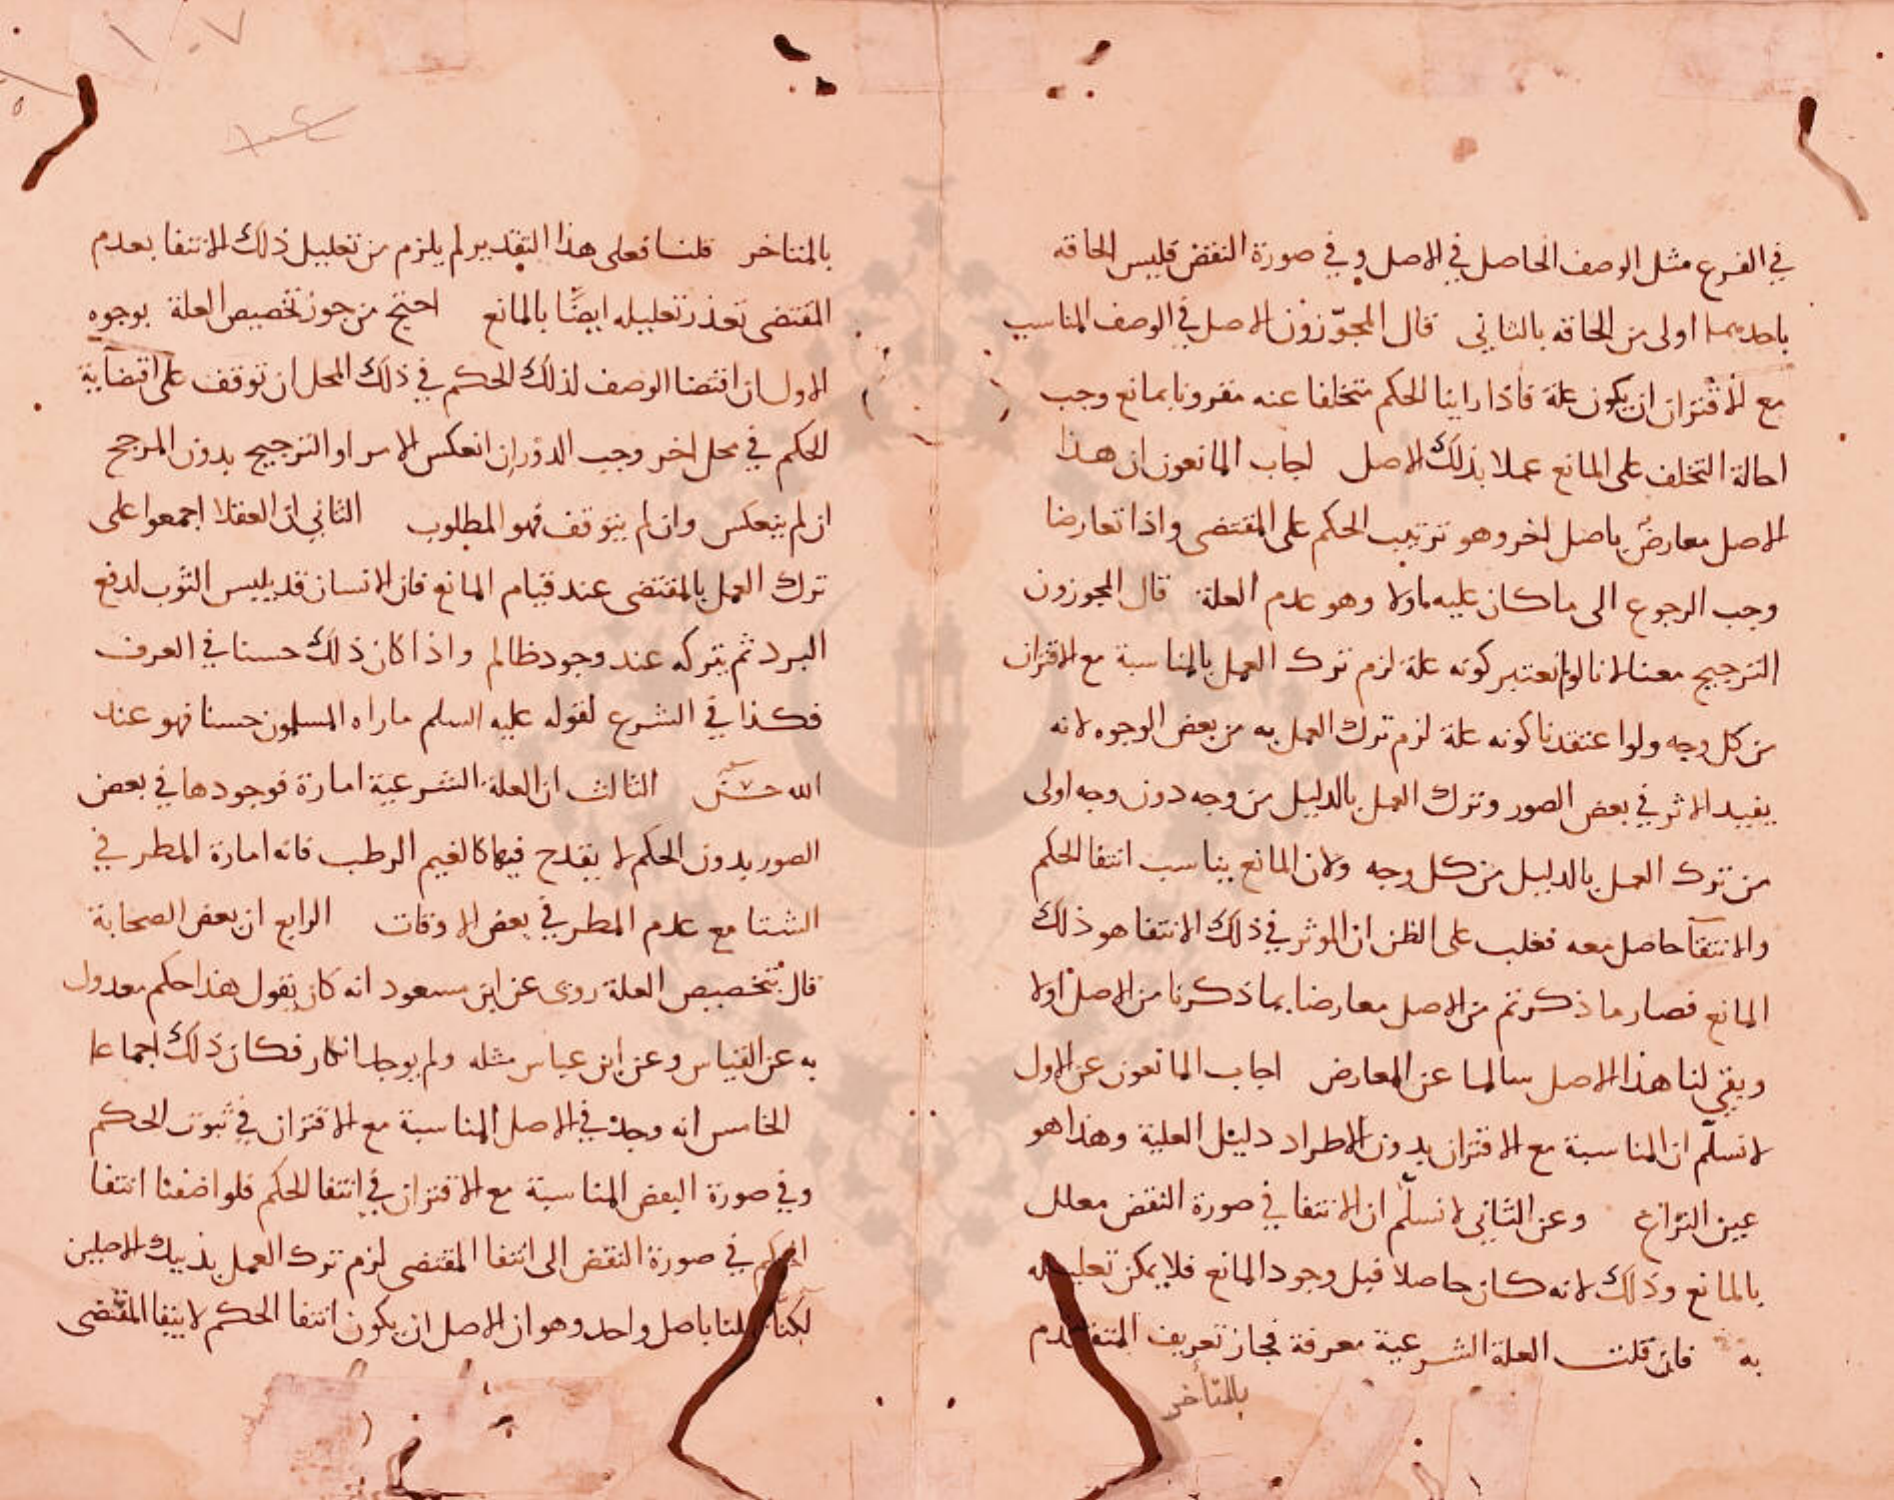 في الفرع مثل الوصف الحاصل في الاصل وفي صورة النقض فليس الحاقه
باحدهما اولى من الحاقه بالثاني قال المجوّزون الاصل في الوصف المناسب
مع الاقتران ان يكون علة فاذا راينا الحكم متخلفا عنه مقرونا بمانع وجب
احالة التخلف على المانع عملا بذلك الاصل اجاب المانعون ان هذا
الاصل معارضٌ باصل اخر وهو ترتيب الحكم على المقتضى واذا تعارضا
وجب الرجوع الى ما كان عليه اولا وهو عدم العلة قال المجوزون
الترجيح معنا لانا لو لم نعتبر كونه علة لزم ترك العمل بالمناسبة مع الاقتران
من كل وجه ولو اعتقدنا كونه علة لزم ترك العمل به من بعض الوجوه لانه
يفيد الاثر في بعض الصور وترك العمل بالدليل من وجه دون وجه اولى
من ترك العمل بالدليل من كل وجه ولان المانع يناسب انتفا الحكم
والانتفآ حاصل معه فغلب على الظن ان الموثر في ذلك الانتفا هو ذلك
المانع فصار ما ذكرتم من الاصل معارضا بما ذكرنا من الاصل اولا
وبقي لنا هذا الاصل سالما عن المعارض اجاب المانعون عن الاول
لا نسلّم ان المناسبة مع الاقتران بدون الاطراد دليل العلية وهذا هو
عين النزاع وعن الثاني لا نسلّم ان الانتفا في صورة النقض معلل
بالمانع وذلك لانه كان حاصلا قبل وجود المانع فلا يمكن تعليله
به فان قلت العلة الشرعية معرفة فجاز تعريف المتقدم
بالمتأخر
١٠٧
بالمتاخر قلنا فعلى هذا التقدير لم يلزم من تعليل ذلك الانتفا بعدم
المقتضى تعذر تعليله ايضًا بالمانع احتج من جوز تخصيص العلة بوجوه
الاول ان اقتضا الوصف لذلك الحكم في ذلك المحل ان توقف على اقتضآيه
الحكم في محل اخر وجب الدور ان انعكس الامر او الترجيح بدون المرجح
ان لم ينعكس وان لم يتوقف فهو المطلوب الثاني ان العقلا اجمعوا على
ترك العمل بالمقتضى عند قيام المانع فان الانسان قد يلبس الثوب لدفع
البرد ثم يتركه عند وجود ظالم واذا كان ذلك حسنا في العرف
فكذا في الشرع لقوله عليه السلم ما راه المسلمون حسنا فهو عند
الله حسن الثالث ان العلة الشرعية امارة فوجودها في بعض
الصور بدون الحكم لا يقدح فيها كالغيم الرطب فانه امارة المطر في
الشتا مع عدم المطر في بعض الاوقات الرابع ان بعض الصحابة
قال بتخصيص العلة روى عن ابن مسعود انه كان يقول هذا حكم معدول
به عن القياس وعن ابن عباس مثله ولم يوجد انكار فكان ذلك اجماعا
الخامس انه وجد في الاصل المناسبة مع الاقتران في ثبوت الحكم
وفي صورة البعض المناسبة مع الاقتران في انتفا الحكم فلو اضفنا انتفا
الحكم في صورة النقض الى انتفا المقتضى لزم ترك العمل بذينك الاصلين
لكنا عملنا باصل واحد وهو ان الاصل ان يكون انتفا الحكم لانتفا المقتضى